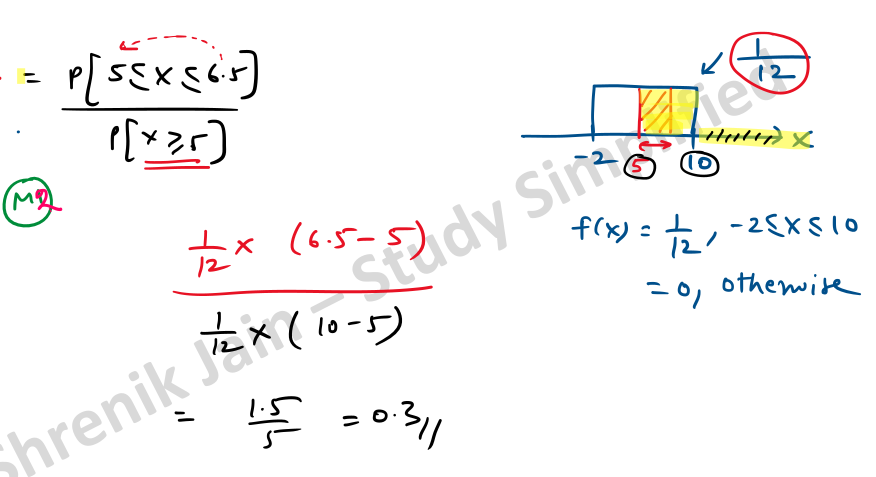 = P[5 ≤ X ≤ 6.5]
P[X ≥ 5]
M2
1/12 × (6.5 - 5)
1/12 × (10 - 5)
= 1.5/5 = 0.3//
1/12
-2 5 10 X
f(x) = 1/12, -2 ≤ X ≤ 10
= 0, otherwise
Shrenik Jain – Study Simplified